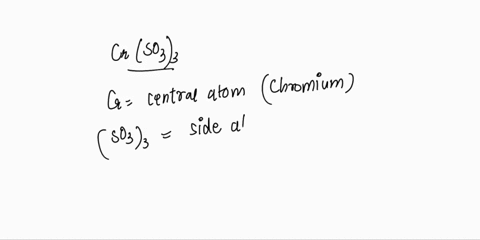 Cr (SO3)3
Cr = central atom (Chromium)
(SO3)3 = side a